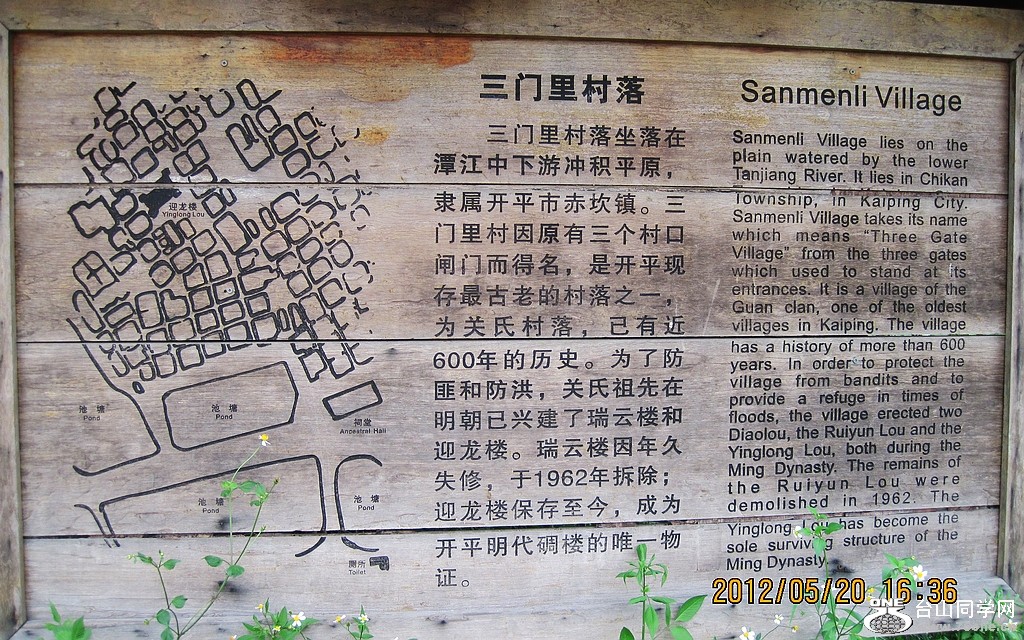 三门里村落
三门里村落坐落在
潭江中下游冲积平原，
隶属开平市赤坎镇。三
门里村因原有三个村口
闸门而得名，是开平现
存最古老的村落之一，
为关氏村落，己有近
600年的历史。为了防
匪和防洪，关氏祖先在
明朝已兴建了瑞云楼和
迎龙楼。瑞云楼因年久
失修，于1962年拆除；
迎龙楼保存至今，成为
开平明代碉楼的唯一物
证。
Sanmenli Village
Sanmenli Village lies on the
plain watered by the lower
Tanjiang River. It lies in Chikan
Township, in Kaiping City.
Sanmenli Village takes its name
which means “Three Gate
Village” from the three gates
which used to stand at its
entrances. It is a village of the
Guan clan, one of the oldest
villages in Kaiping. The village
has a history of more than 600
years. In order to protect the
village from bandits and to
provide a refuge in times of
floods, the village erected two
Diaolou, the Ruiyun Lou and the
Yinglong Lou, both during the
Ming Dynasty. The remains of
the Ruiyun Lou were
demolished in 1962. The
Yinglong Lou has become the
sole surviving structure of the
Ming Dynasty.
迎龙楼
Yinglong Lou
池塘
Pond
池塘
Pond
祠堂
Ancestral Hall
池塘
Pond
池塘
Pond
厕所
Toilet
2012/05/20 16:36
ONE
台山同学网